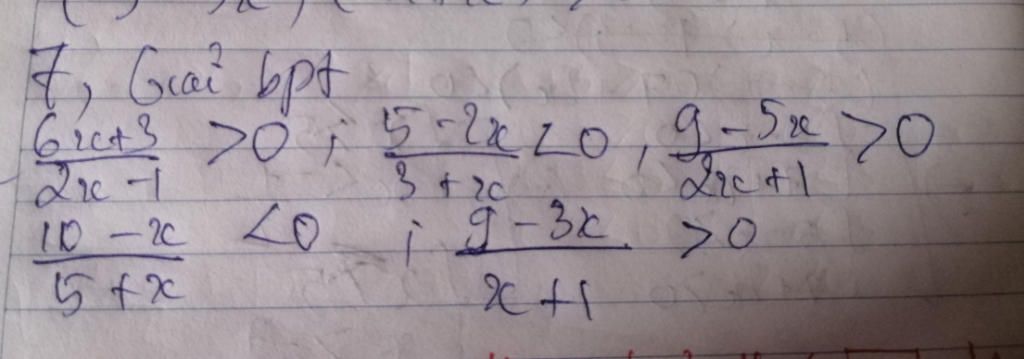 7, Giải bpt
\frac{6x+3}{2x-1} >0 ; \frac{5-2x}{3+x} <0 , \frac{9-5x}{2x+1} >0
\frac{10-x}{5+x} <0 ; \frac{9-3x}{x+1} >0